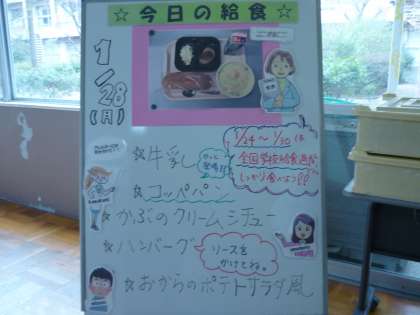 ☆今日の給食☆
1/28(月)
☆牛乳
1/24〜1/30は
全国学校給食週間
☆コッペパン
☆かぶのクリームシチュー
☆ハンバーグ
ソースを
かけてね。
☆おからのポテトサラダ風